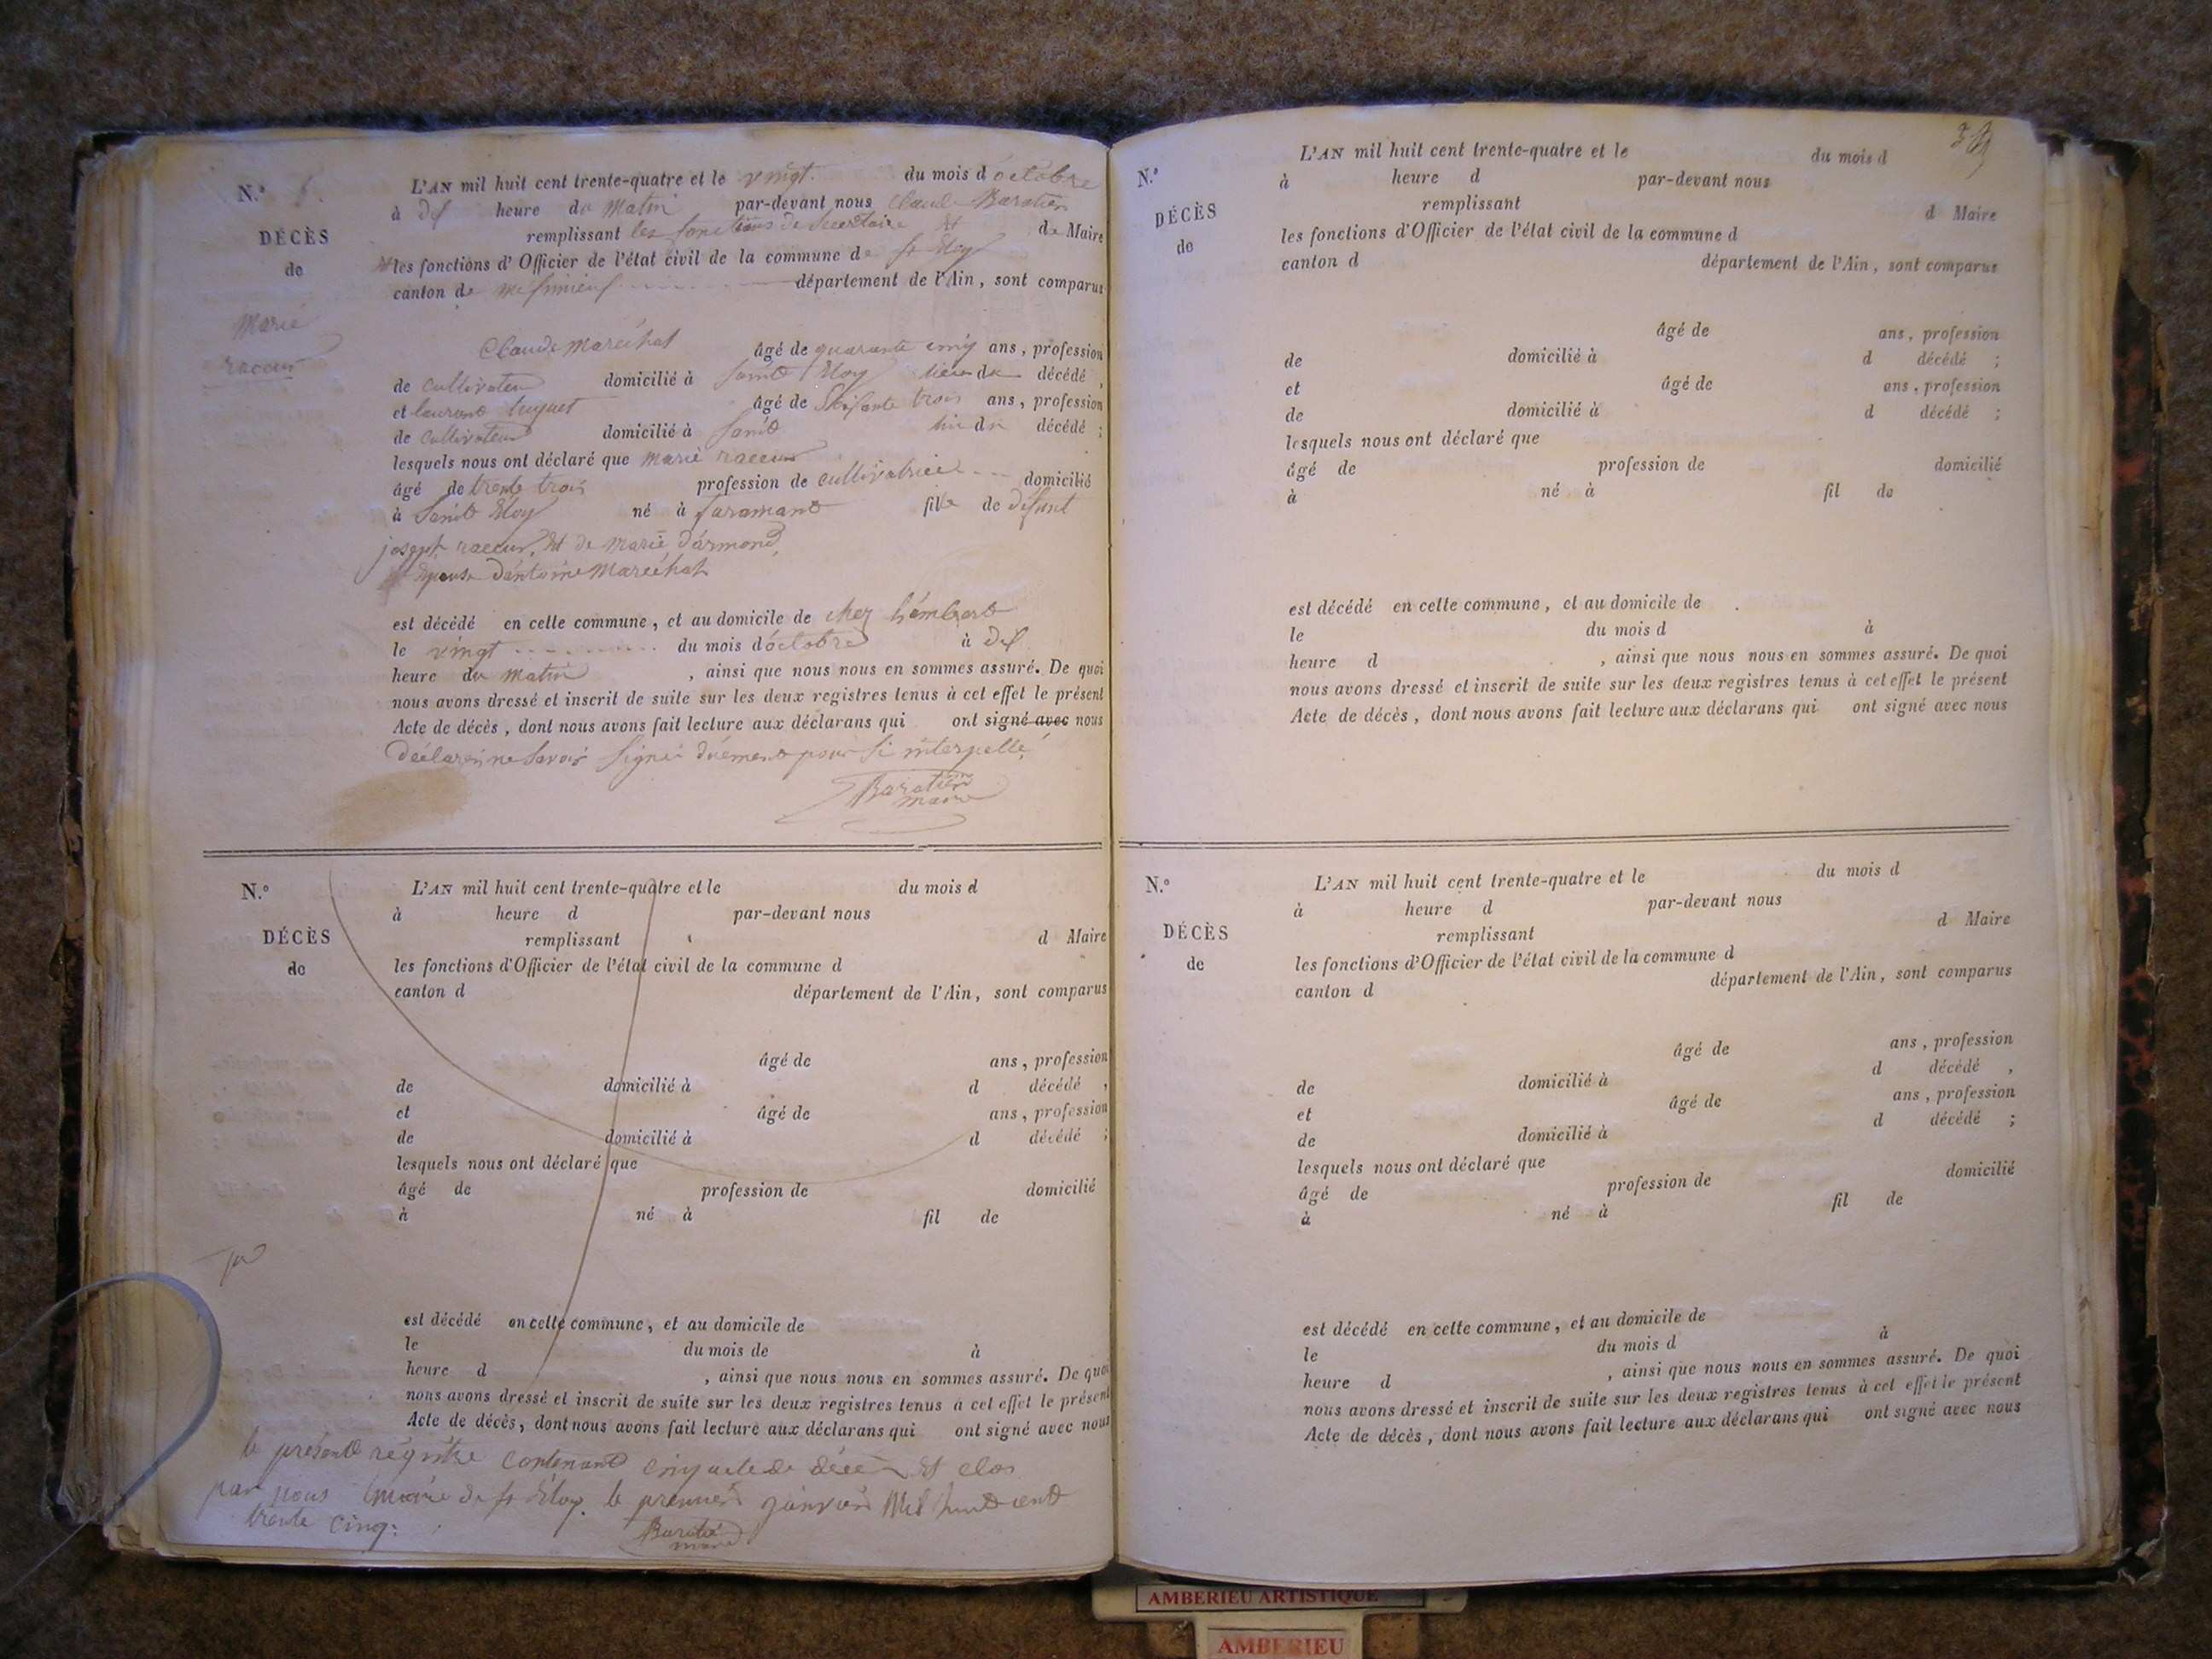 N.º
DÉCÈS
de
Marie
raccur
L'AN mil huit cent trente-quatre et le vingt. du mois d octobre
à dif heure du Matin par-devant nous Claude Baratier
remplissant les fonctions de Secretaire et de Maire
les fonctions d'Officier de l'état civil de la commune de St Eloy
canton de meximieux département de l'Ain, sont comparus
Claude Maréchal âgé de quarante cinq ans, profession
de Cultivateur domicilié à Saint Eloy décédé,
et laurent âgé de trois ans, profession
de Cultivateur domicilié à Saint décédé;
lesquels nous ont déclaré que Marie raccur
âgé de trente trois profession de cultivatrice domicilié
à Saint Eloy né à faramant fille de défunt
joseph raccur, et de Marie d'armond
épouse d'antoine Maréchal
est décédé en cette commune, et au domicile de chez
le vingt du mois d'octobre à dif
heure du matin, ainsi que nous nous en sommes assuré. De quoi
nous avons dressé et inscrit de suite sur les deux registres tenus à cet effet le présent
Acte de décès, dont nous avons fait lecture aux déclarans qui ont signé avec nous
Déclaré ne Savoir Signer duement pour si interpellé
Baratier
maire
N.º
DÉCÈS
de
L'AN mil huit cent trente-quatre et le du mois d
à heure d par-devant nous
remplissant d Maire
les fonctions d'Officier de l'état civil de la commune d
canton d département de l'Ain, sont comparus
âgé de ans, profession
de domicilié à d décédé,
et âgé de ans, profession
de domicilié à d décédé;
lesquels nous ont déclaré que
âgé de profession de domicilié
à né à fil de
est décédé en cette commune, et au domicile de
le du mois de à
heure d , ainsi que nous nous en sommes assuré. De quoi
nous avons dressé et inscrit de suite sur les deux registres tenus à cet effet le présent
Acte de décès, dont nous avons fait lecture aux déclarans qui ont signé avec nous
le présent régistre Contenant cinq acte de décès et clos
par nous maire de St Eloy. le premier janvier Mil huit cent
trente cinq:
Baratié
maire
N.º
DÉCÈS
de
L'AN mil huit cent trente-quatre et le du mois d
à heure d par-devant nous
remplissant d Maire
les fonctions d'Officier de l'état civil de la commune d
canton d département de l'Ain, sont comparus
âgé de ans, profession
de domicilié à d décédé;
et âgé de ans, profession
de domicilié à d décédé;
lesquels nous ont déclaré que
âgé de profession de domicilié
à né à fil de
est décédé en cette commune, et au domicile de
le du mois d à
heure d , ainsi que nous nous en sommes assuré. De quoi
nous avons dressé et inscrit de suite sur les deux registres tenus à cet effet le présent
Acte de décès, dont nous avons fait lecture aux déclarans qui ont signé avec nous
N.º
DÉCÈS
de
L'AN mil huit cent trente-quatre et le du mois d
à heure d par-devant nous
remplissant d Maire
les fonctions d'Officier de l'état civil de la commune d
canton d département de l'Ain, sont comparus
âgé de ans, profession
de domicilié à d décédé,
et âgé de ans, profession
de domicilié à d décédé;
lesquels nous ont déclaré que
âgé de profession de domicilié
à né à fil de
est décédé en cette commune, et au domicile de
le du mois d à
heure d , ainsi que nous nous en sommes assuré. De quoi
nous avons dressé et inscrit de suite sur les deux registres tenus à cet effet le présent
Acte de décès, dont nous avons fait lecture aux déclarans qui ont signé avec nous
AMBERIEU ARTISTIQUE
AMBERIEU